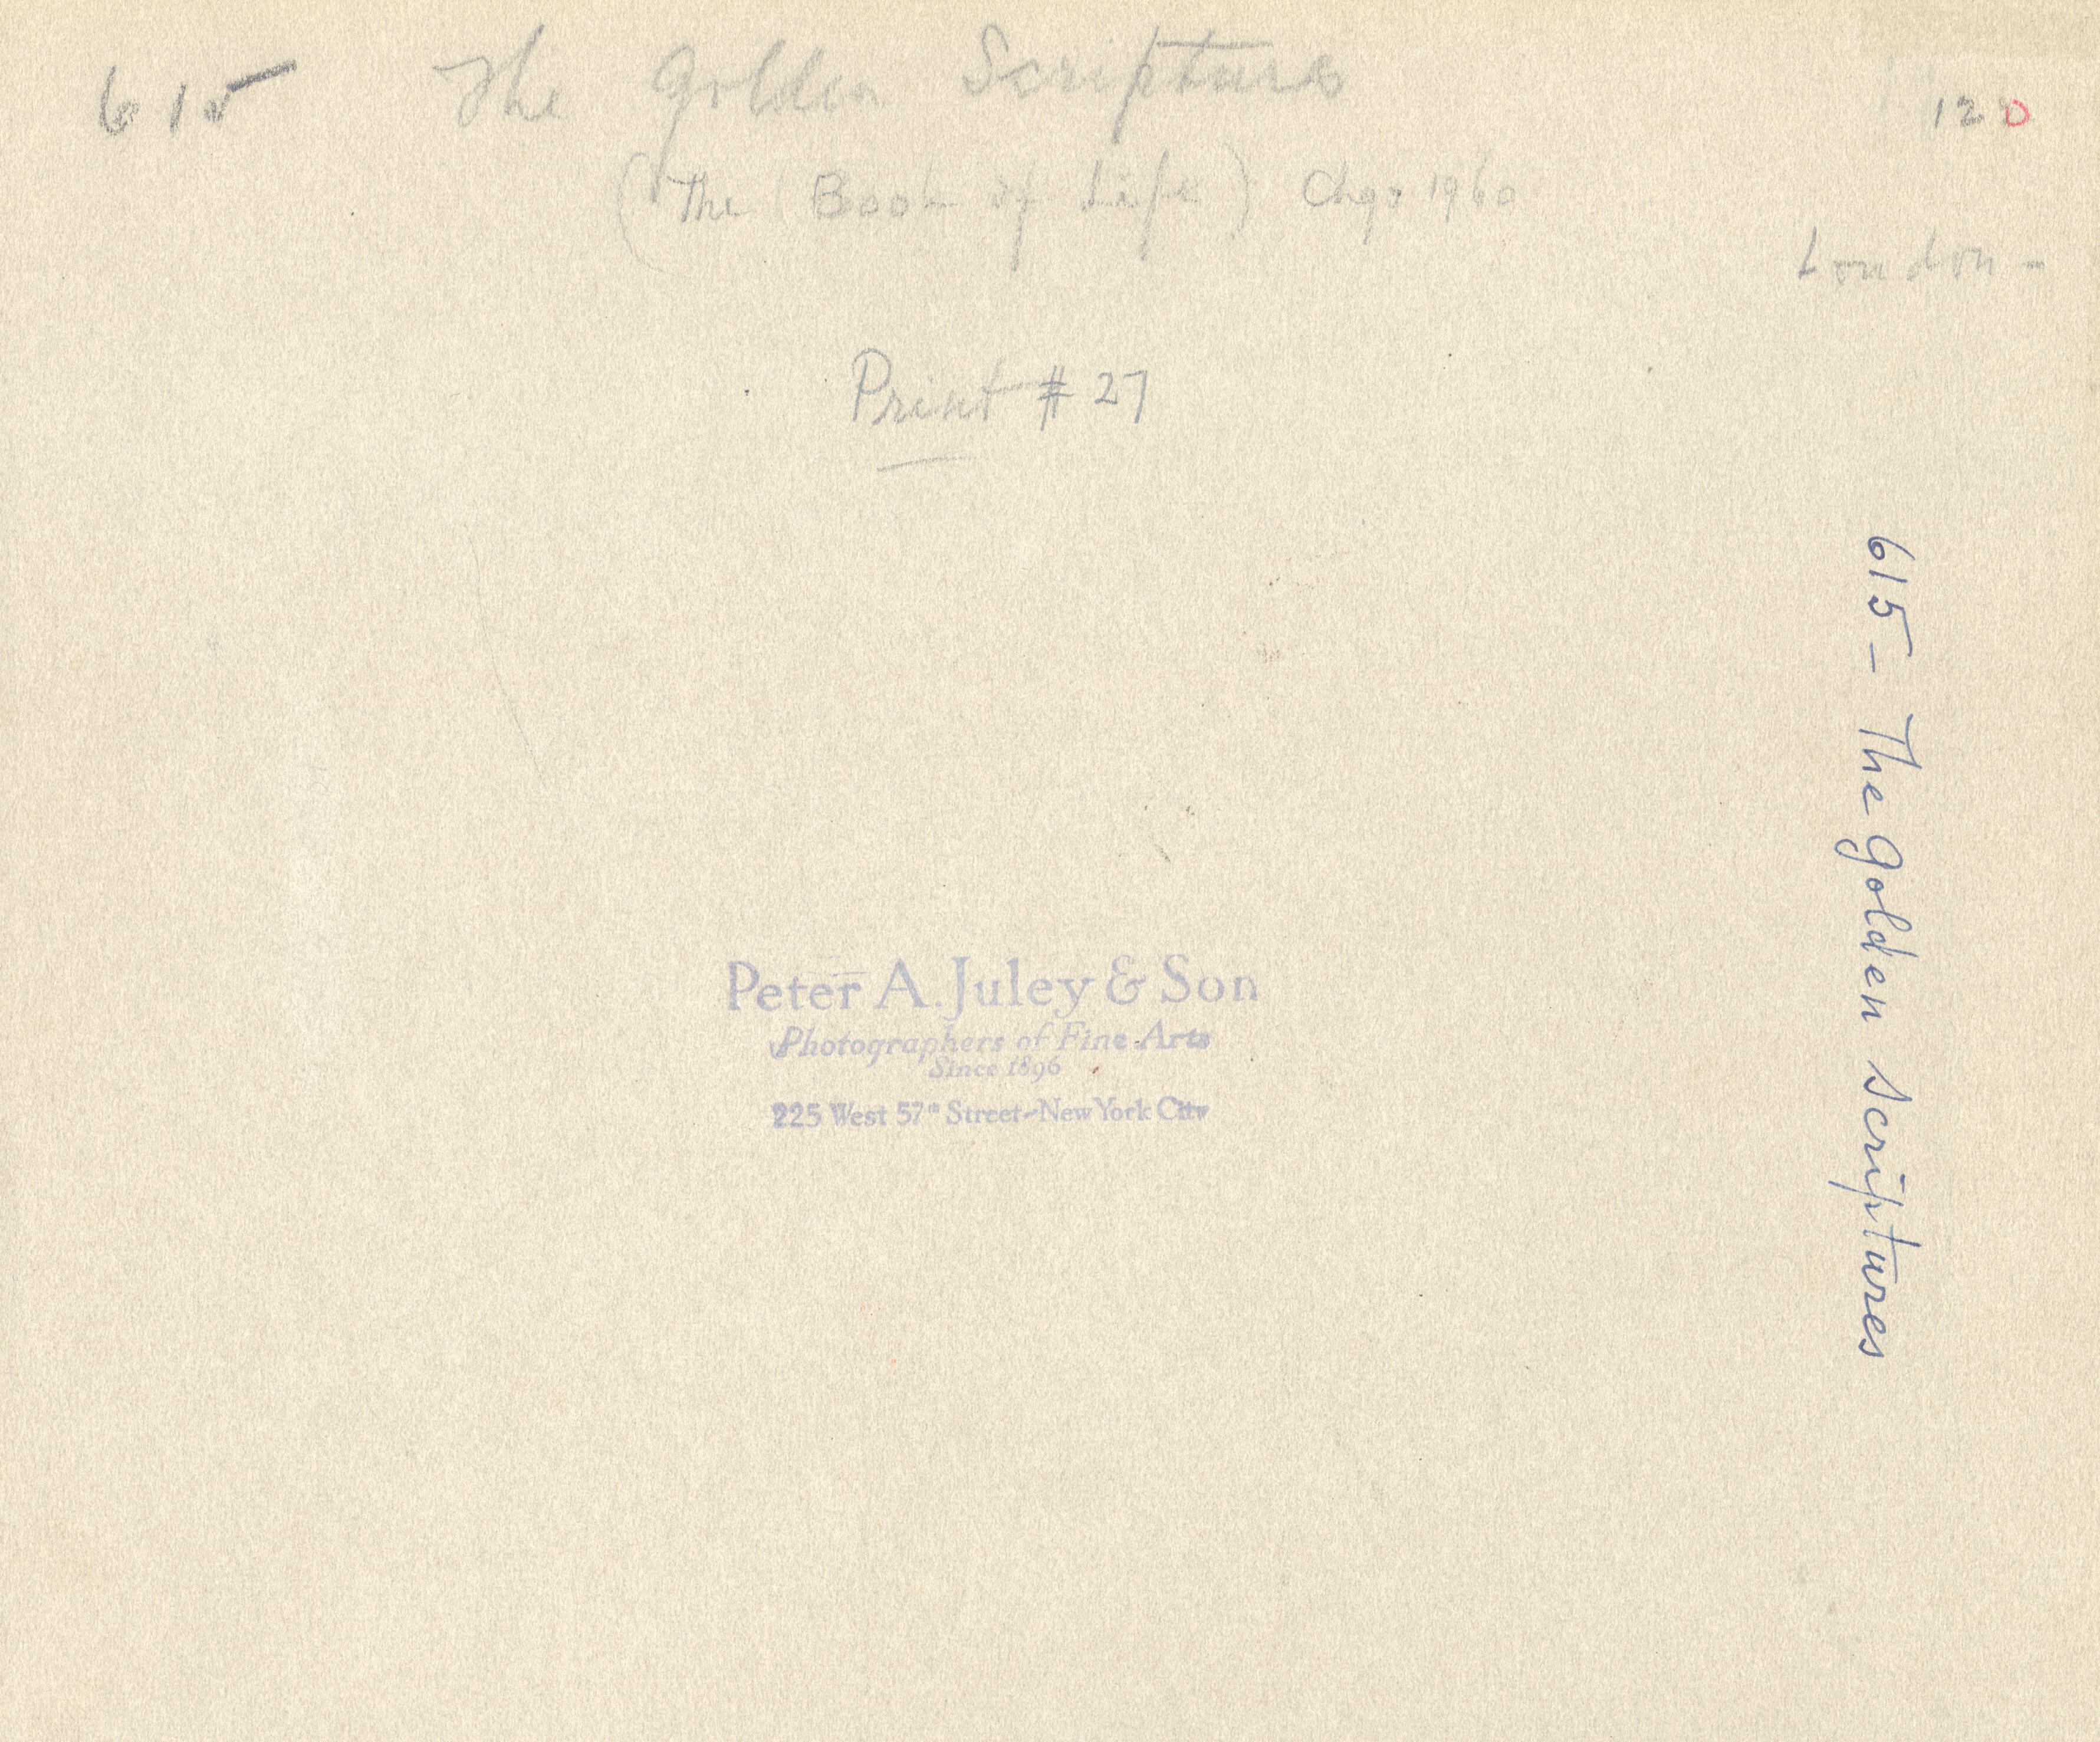 615 The Golden Scriptures 120
(The Book of Life) Chgo 1960
London -
Print # 27
615 - The Golden Scriptures
Peter A. Juley & Son
Photographers of Fine Arts
Since 1896
225 West 57th Street-New York City